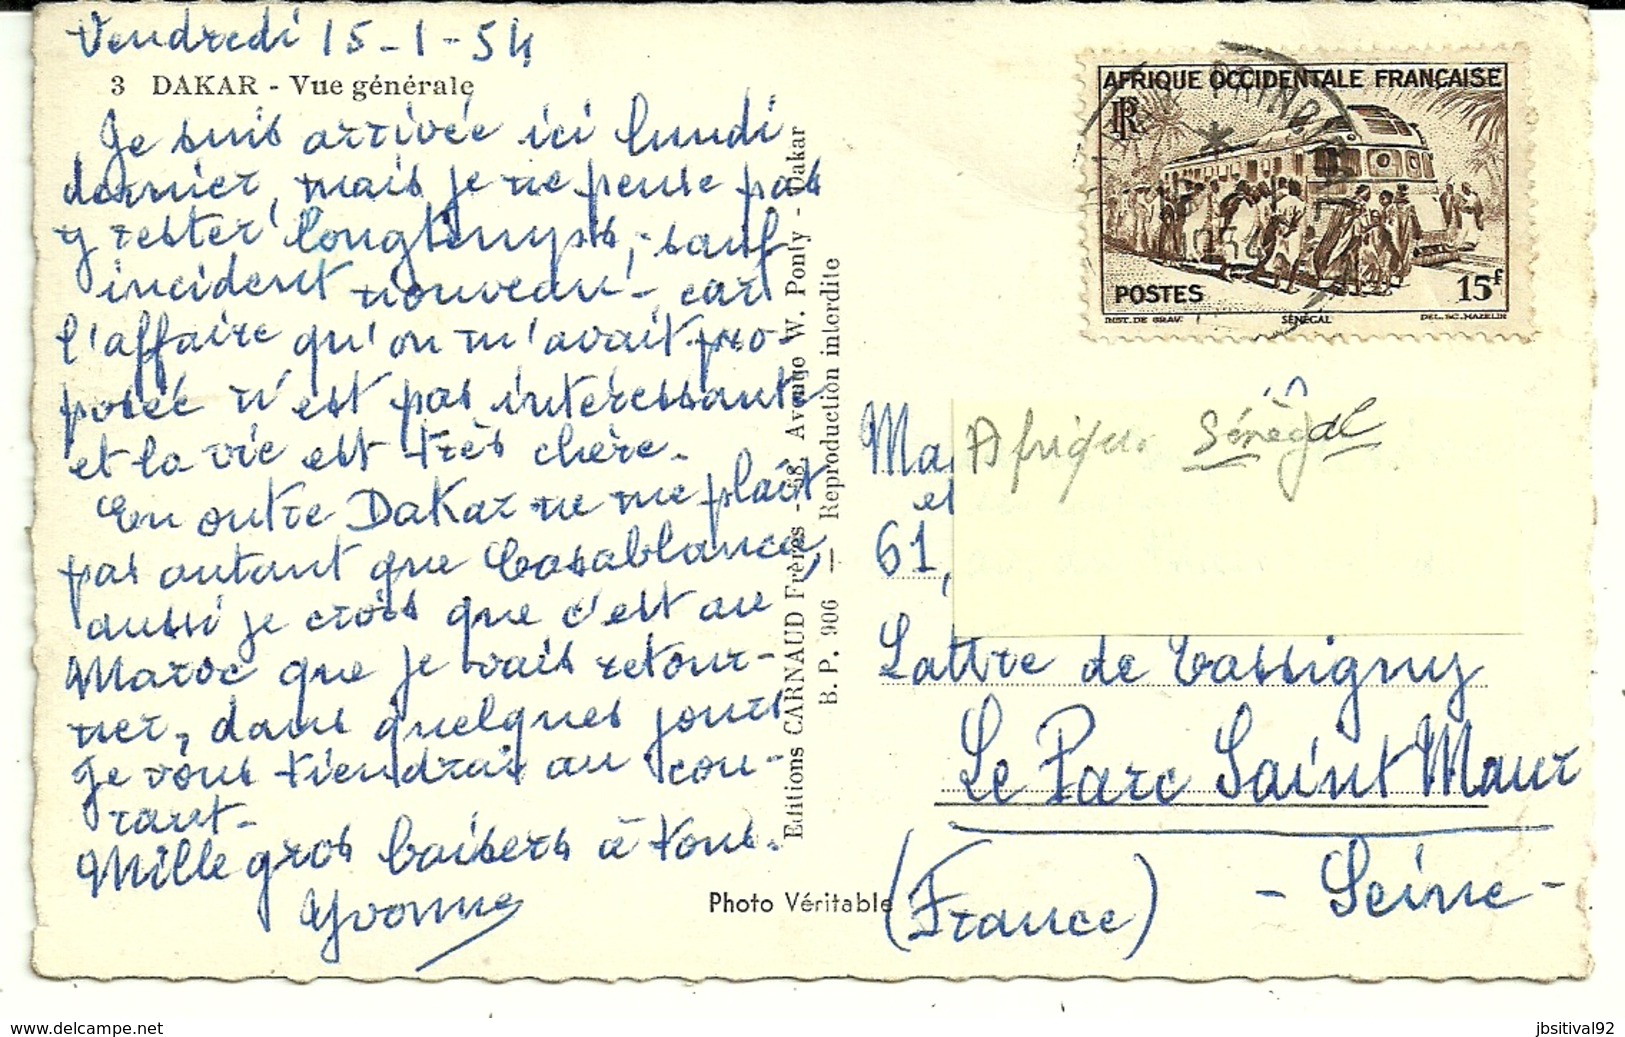 Vendredi 15-1-54
3 DAKAR - Vue générale
Je suis arrivée ici lundi
dernier, mais je ne pense pas
y rester longtemps, sauf
incident nouveau, car
l'affaire qu'on m'avait pro-
posée n'est pas intéressante
et la vie est très chère.
En outre Dakar ne me plaît
pas autant que Casablanca,
aussi je crois que c'est au
Maroc que je vais retour-
ner, dans quelques jours
Je vous tiendrai au cou-
rant.
Mille gros baisers à tous.
Yvonne
Editions CARNAUD Frères - 68, Avenue W. Ponty - Dakar
B. P. 906 — Reproduction interdite
Photo Véritable
AFRIQUE OCCIDENTALE FRANÇAISE
RF
POSTES
15f
INST. DE GRAV.
SÉNÉGAL
DEL. SC. MAZELIN
PRINCIPAL
1954
Afrique Sénégal
Ma
et
61,
Lattre de Tassigny
Le Parc Saint Maur
(France) - Seine -
www.delcampe.net
jbsitival92